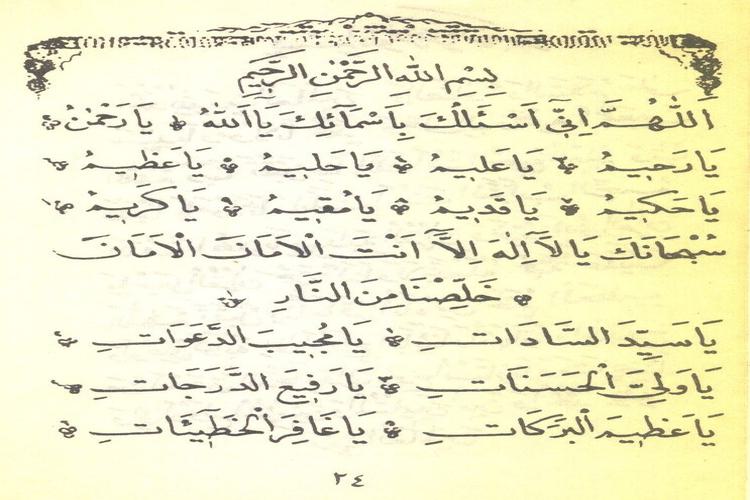 بِسْمِ اللّٰهِ الرَّحْمٰنِ الرَّحِيمِ
اَللّٰهُمَّ اِنِّي اَسْئَلُكَ بِاَسْمَائِكَ يَا اَللّٰهُ يَا رَحْمٰنُ
يَا رَحِيمُ يَا عَلِيمُ يَا حَلِيمُ يَا عَظِيمُ
يَا حَكِيمُ يَا قَدِيمُ يَا مُقِيمُ يَا كَرِيمُ
سُبْحَانَكَ يَا لَا اِلٰهَ اِلَّا اَنْتَ الْاَمَانَ الْاَمَانَ
خَلِّصْنَا مِنَ النَّارِ
يَا سَيِّدَ السَّادَاتِ يَا مُجِيبَ الدَّعَوَاتِ
يَا وَلِيَّ الْحَسَنَاتِ يَا رَفِيعَ الدَّرَجَاتِ
يَا عَظِيمَ الْبَرَكَاتِ يَا غَافِرَ الْخَطِيئَاتِ
٢٤